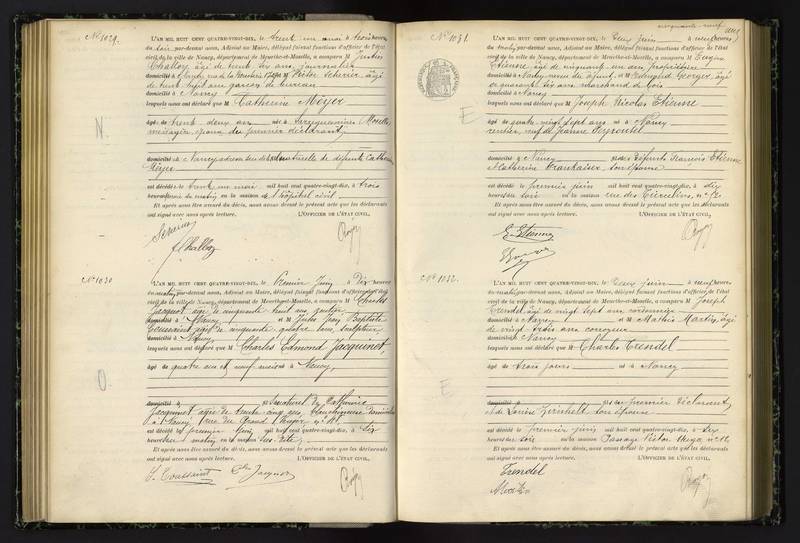 No 1029.
L'AN MIL HUIT CENT QUATRE-VINGT-DIX, le trent un mai à trois heures
du soir par-devant nous, Adjoint au Maire, délégué faisant fonctions d'officier de l'état
civil de la ville de Nancy, département de Meurthe-et-Moselle, a comparu M Justin
Challoy, âgé de trent six ans, journalier
domicilié à Nancy et M Victor Scherrer âgé
de trent sept ans garçon de bureau
domicilié à Nancy
lesquels nous ont déclaré que M Catherine Meyer
N.
âgé de trent deux ans né à Sarreguemines Moselle,
ménagère, épouse du premier déclarant,
domicilié à Nancy naturelle de défunte Catherine
Meyer
est décédé le trent un mai mil huit cent quatre-vingt-dix, à trois
heures du matin en la maison l'hôpital civil
Et après nous être assuré du décès, nous avons dressé le présent acte que les déclarants
ont signé avec nous après lecture. L'OFFICIER DE L'ÉTAT CIVIL,
Challoy
No 1030
L'AN MIL HUIT CENT QUATRE-VINGT-DIX, le Premier Juin à Dix heures
du matin par-devant nous, Adjoint au Maire, délégué faisant fonctions d'officier de l'état
civil de la ville de Nancy, département de Meurthe-et-Moselle, a comparu M Charles
Jacquot âgé de cinquante huit ans,
domicilié à Nancy et M Jules Jean Baptiste
Toussaint âgé de cinquante quatre ans, sculpteur
domicilié à Nancy,
lesquels nous ont déclaré que M Charles Edmond Jacquinet,
O.
âgé de quatre ans et neuf mois né à Nancy,
domicilié à naturel de Catherine
Jacquinet âgée de trente cinq ans, blanchisseuse domiciliée
à Nancy, rue du Grand Verger no 11,
est décédé le premier Juin mil huit cent quatre-vingt-dix, à six
heures matin en la maison sus-dite,
Et après nous être assuré du décès, nous avons dressé le présent acte que les déclarants
ont signé avec nous après lecture. L'OFFICIER DE L'ÉTAT CIVIL,
J. Toussaint Jacquot
cinquante-neuf
No 1031.
L'AN MIL HUIT CENT QUATRE-VINGT-DIX, le Deux juin à neuf heures
du matin, par-devant nous, Adjoint au Maire, délégué faisant fonctions d'officier de l'état
civil de la ville de Nancy, département de Meurthe-et-Moselle, a comparu M Eugène
Etienne, âgé de cinquante un ans propriétaire
domicilié à Nancy neveu du défunt, et M Edmond George, âgé
de quarante six ans marchand de bois
domicilié à Nancy
lesquels nous ont déclaré que M Joseph Nicolas Etienne
E
âgé de quatre vingt sept ans né à Nancy
rentier, veuf de Jeanne Peyroutet
domicilié à Nancy fils des défunts François Etienne
et Catherine son épouse
est décédé le premier juin mil huit cent quatre-vingt-dix, à dix
heures du soir en la maison rue des
Et après nous être assuré du décès, nous avons dressé le présent acte que les déclarants
ont signé avec nous après lecture. L'OFFICIER DE L'ÉTAT CIVIL,
E. Etienne
No 1032.
L'AN MIL HUIT CENT QUATRE-VINGT-DIX, le Deux juin à neuf heures
du matin par-devant nous, Adjoint au Maire, délégué faisant fonctions d'officier de l'état
civil de la ville de Nancy, département de Meurthe-et-Moselle, a comparu M Joseph
Trendel, âgé de vingt sept ans cordonnier
domicilié à Nancy et M Mathis Martin, âgé
de vingt-trois ans
domicilié à Nancy
lesquels nous ont déclaré que M Charles Trendel
E
âgé de trois jours né à Nancy
domicilié à fils du premier déclarant,
et de Louise son épouse
est décédé le premier juin mil huit cent quatre-vingt-dix, à six
heures du soir en la maison Passage Victor Hugo, no 12,
Et après nous être assuré du décès, nous avons dressé le présent acte que les déclarants
ont signé avec nous après lecture. L'OFFICIER DE L'ÉTAT CIVIL,
Trendel